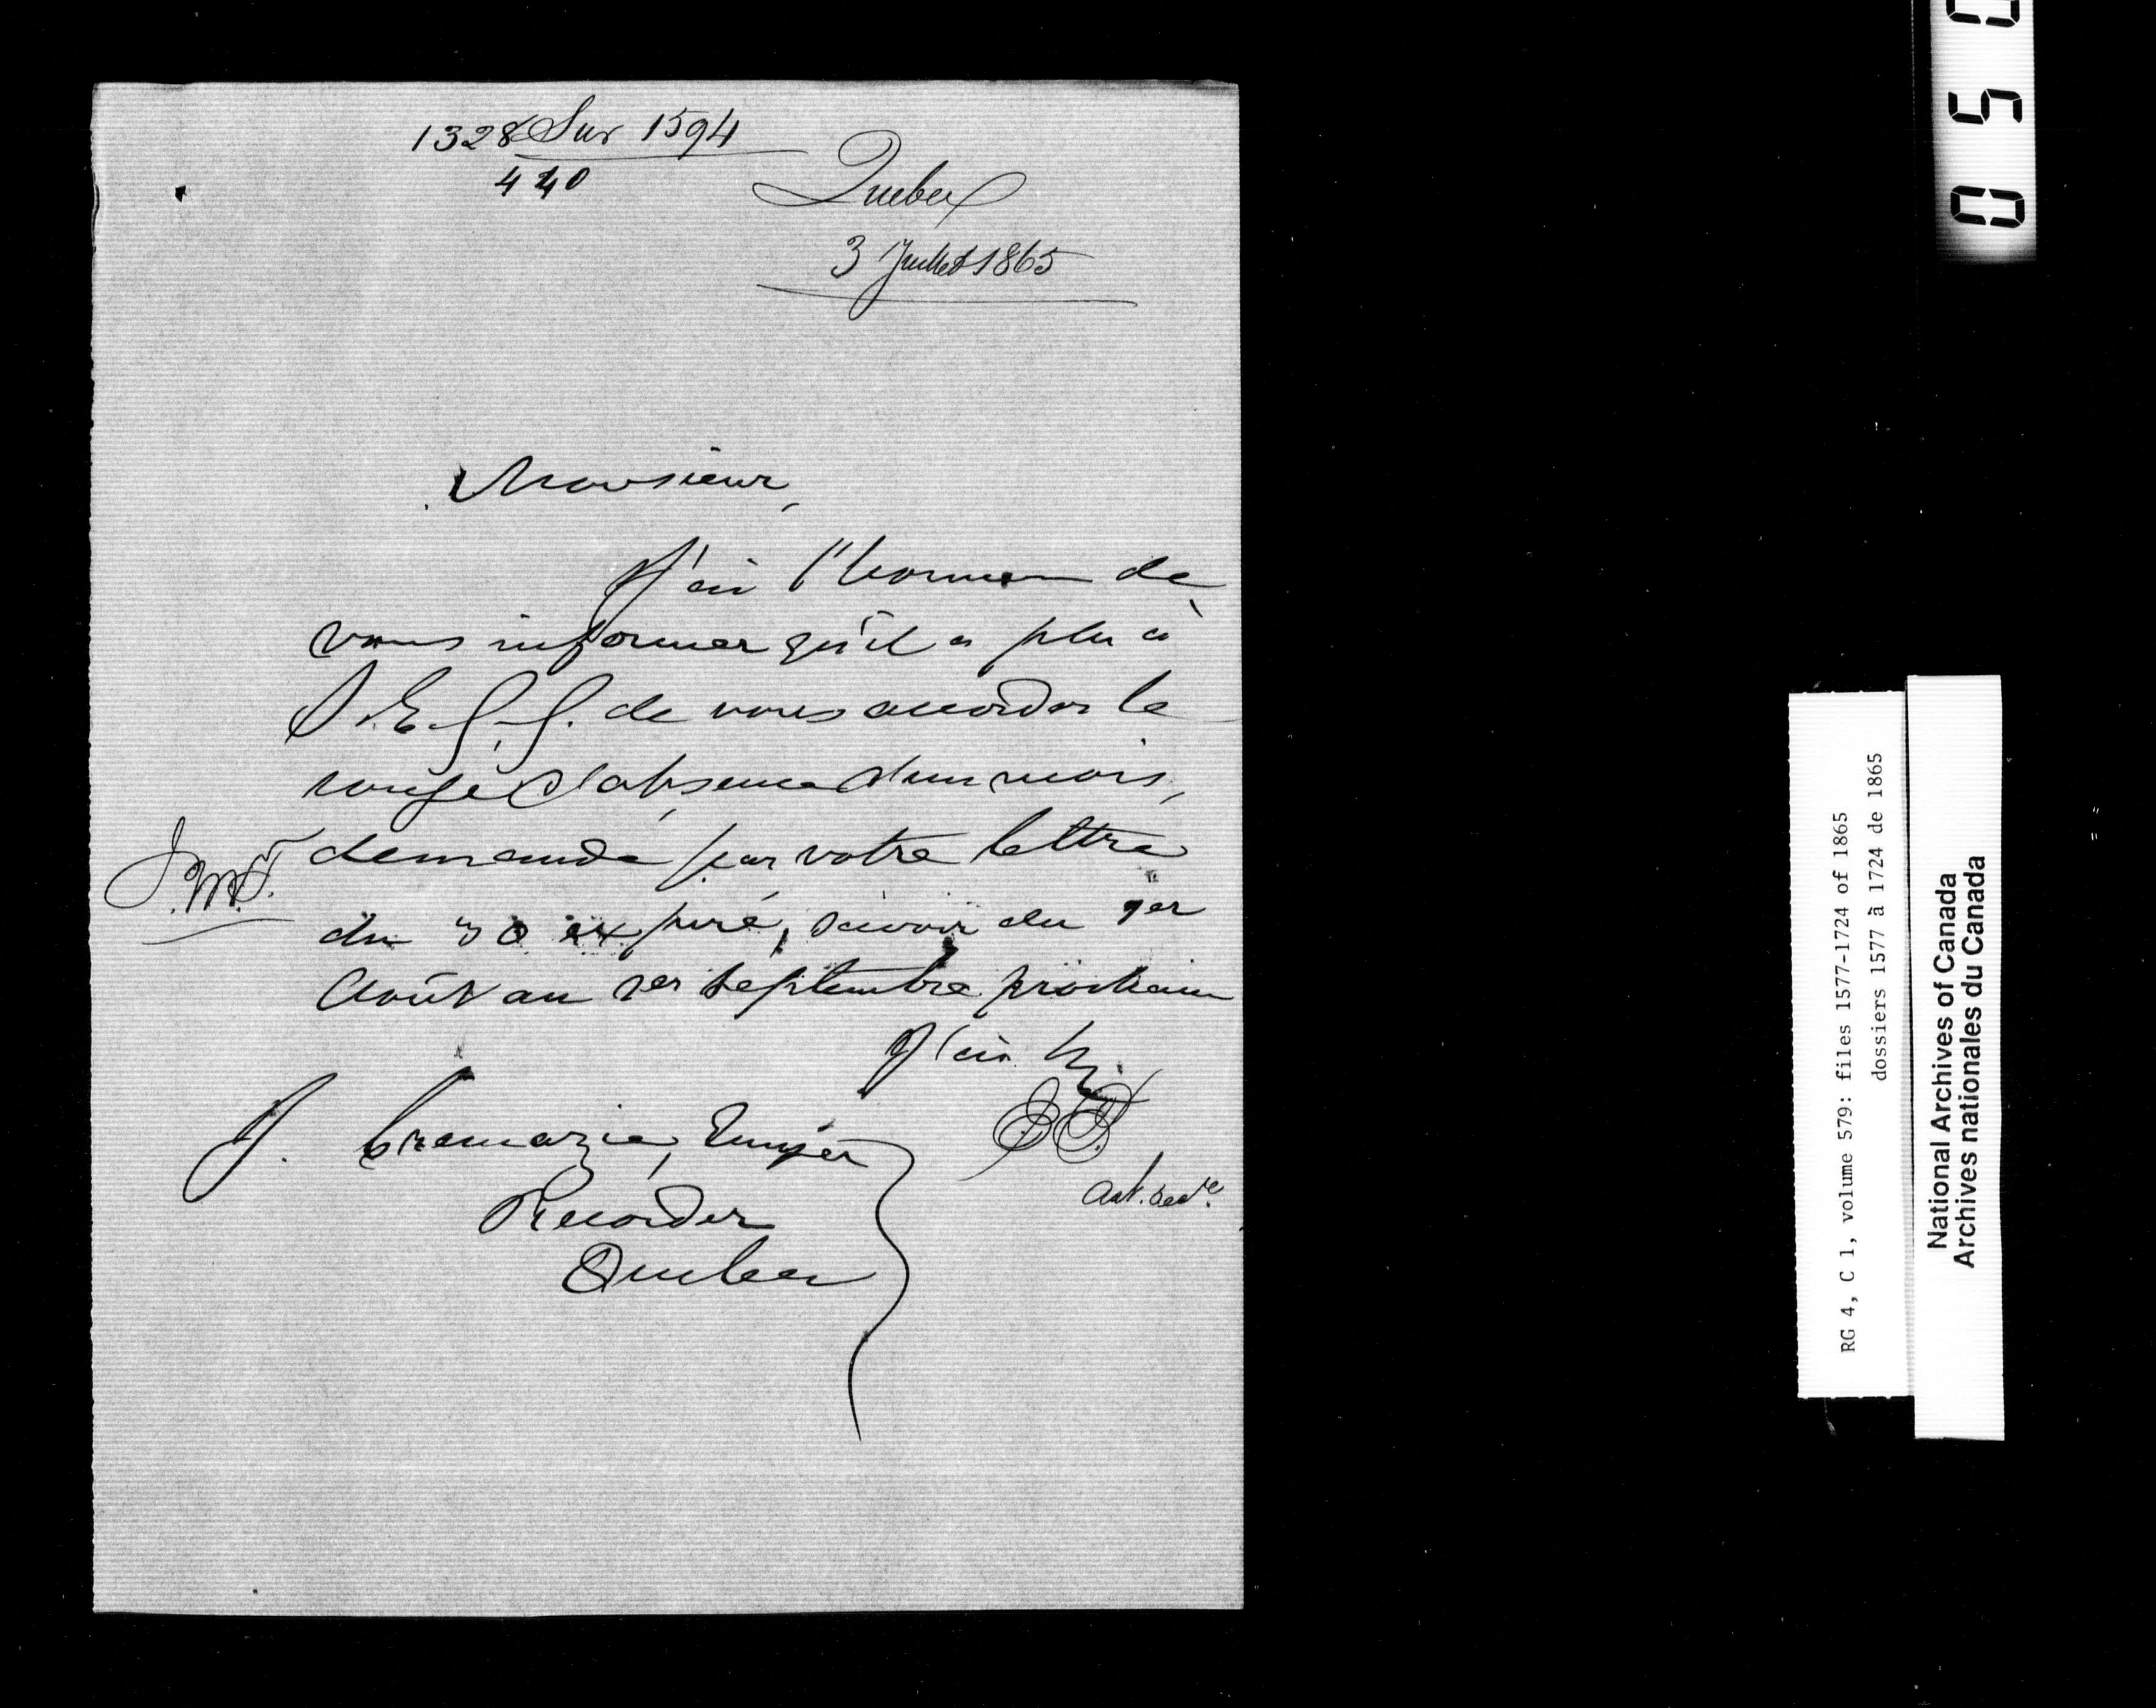 1328 Sur 1594
440
Quebec
3 Juillet 1865
Monsieur,
J'ai l'honneur de
vous informer qu'il a plu à
S.E.G.G. de vous accorder le
congé d'absence d'un mois,
demandé par votre lettre
du 30 expiré, savoir du 1er
Août au 1er Septembre prochain
J'ai
J. Cremazie, Ecuyer
Recorder
Quebec
Ast. Secre.
RG 4, C 1, volume 579: files 1577-1724 of 1865
dossiers 1577 à 1724 de 1865
National Archives of Canada
Archives nationales du Canada